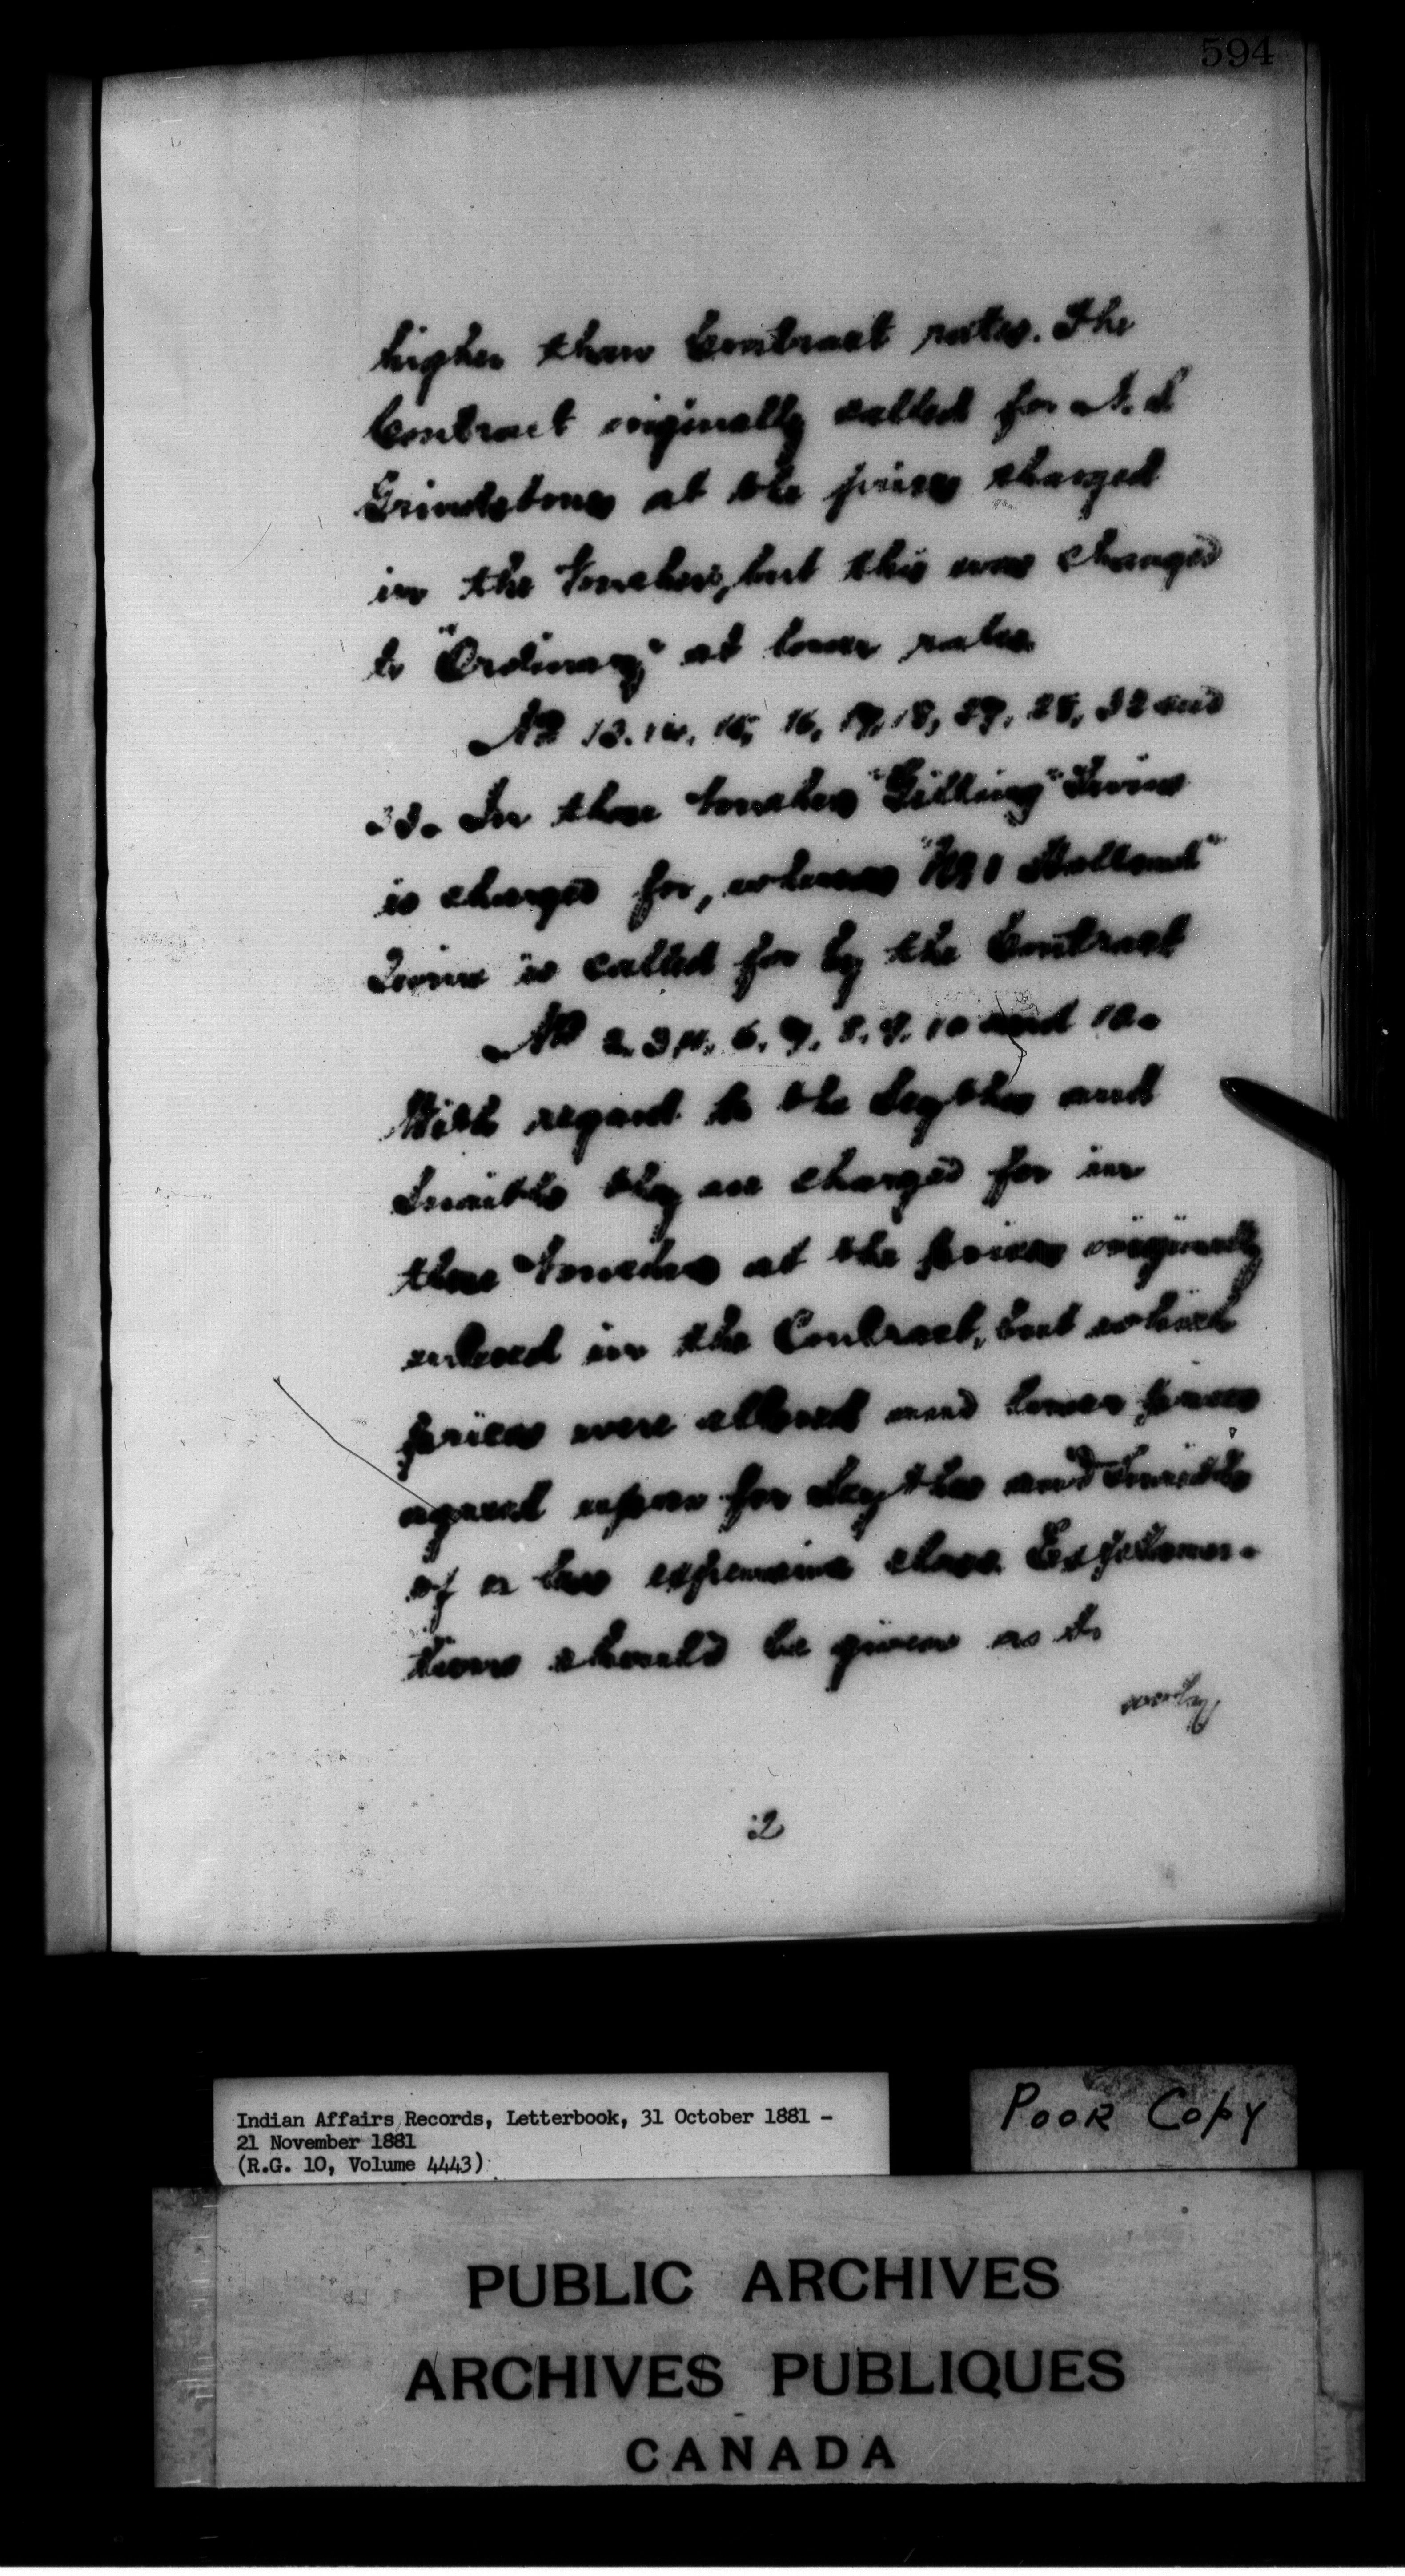 594
higher than Contract rates. The
Contract originally called for N.S
Grindstones at the prices charged
in the Vouchers, but this was changed
to "Ordinary" at lower rates
No 13. 14. 15, 16, 17, 18, 27, 28, 32 and
33. In these Vouchers "Gilling" Twine
is charged for, whereas "No 1 Holland"
Twine is called for by the Contract
No 2. 3. 4. 6. 7. 8. 9. 10 and 12.
With regard to the Scythes and
Snaiths they are charged for in
these Vouchers at the prices originally
entered in the Contract, but which
prices were altered and lower prices
agreed upon for Scythes and Snaiths
of a less expensive class. Explana-
tions should be given as to
2
Indian Affairs Records, Letterbook, 31 October 1881 -
21 November 1881
(R.G. 10, Volume 4443)
POOR COPY
PUBLIC ARCHIVES
ARCHIVES PUBLIQUES
CANADA